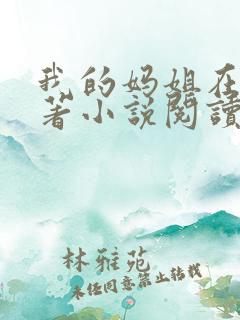 我的妈姐在
著小说阅读
林雅苑
未经同意禁止转载